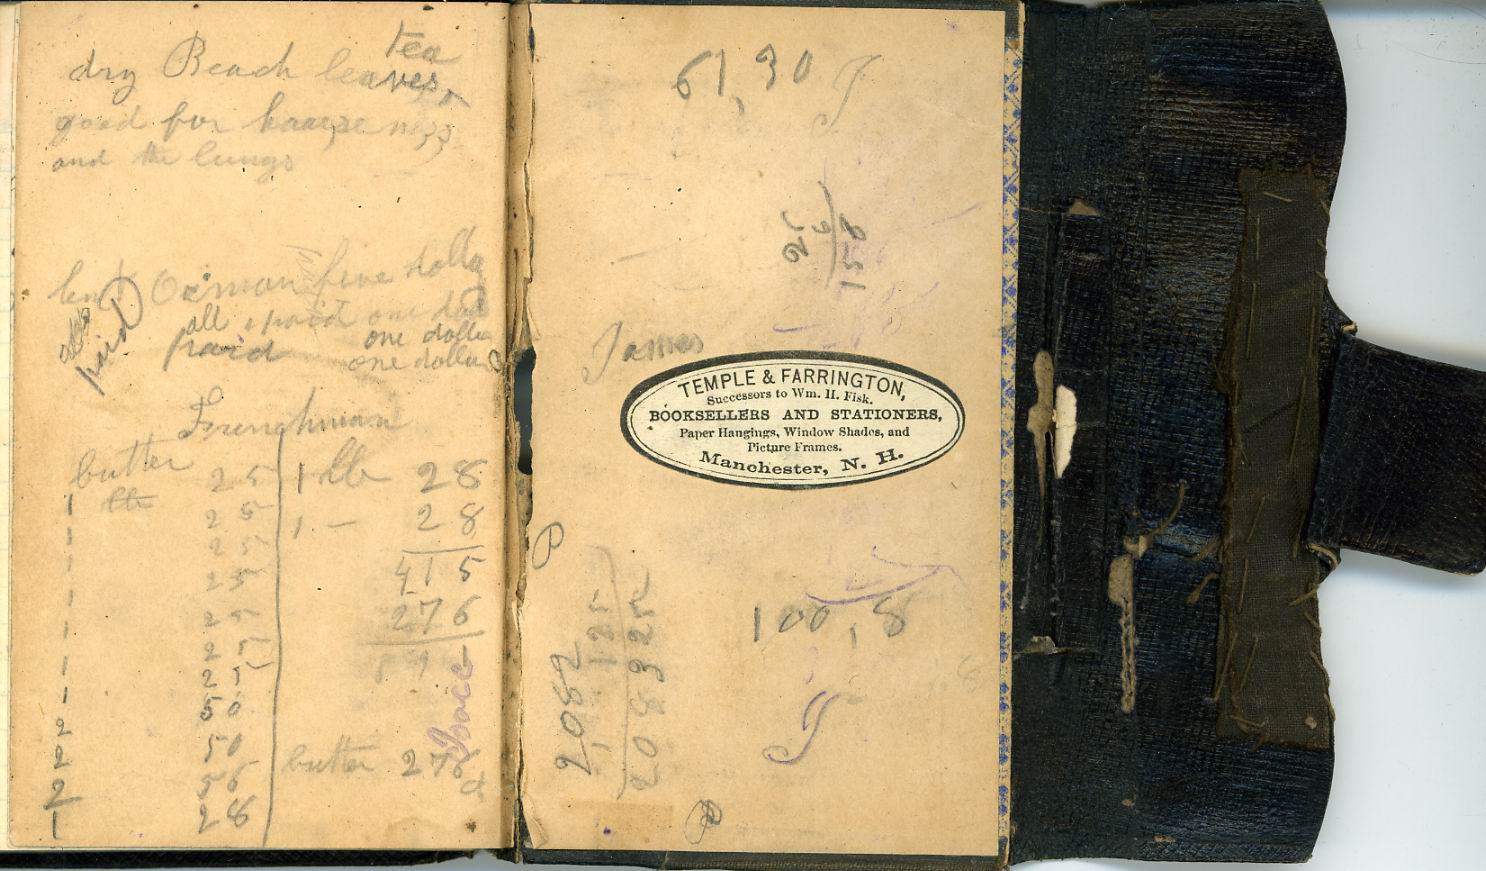 dry Beach leaves tea
good for hoarseness
and the lungs
lent five dolla
all paid one doll
paid one dolla
one dolla
all paid
Frenchman
butter 25 1 lb 28
1 lb 25 1 — 28
1 25 415
1 25 276
1 25
1 25
1 25
2 50
2 50 butter 276
2 56
1 28
61,30
James
TEMPLE & FARRINGTON,
Successors to Wm. H. Fisk.
BOOKSELLERS AND STATIONERS,
Paper Hangings, Window Shades, and
Picture Frames.
Manchester, N. H.
100,8
2082
1,25
208325